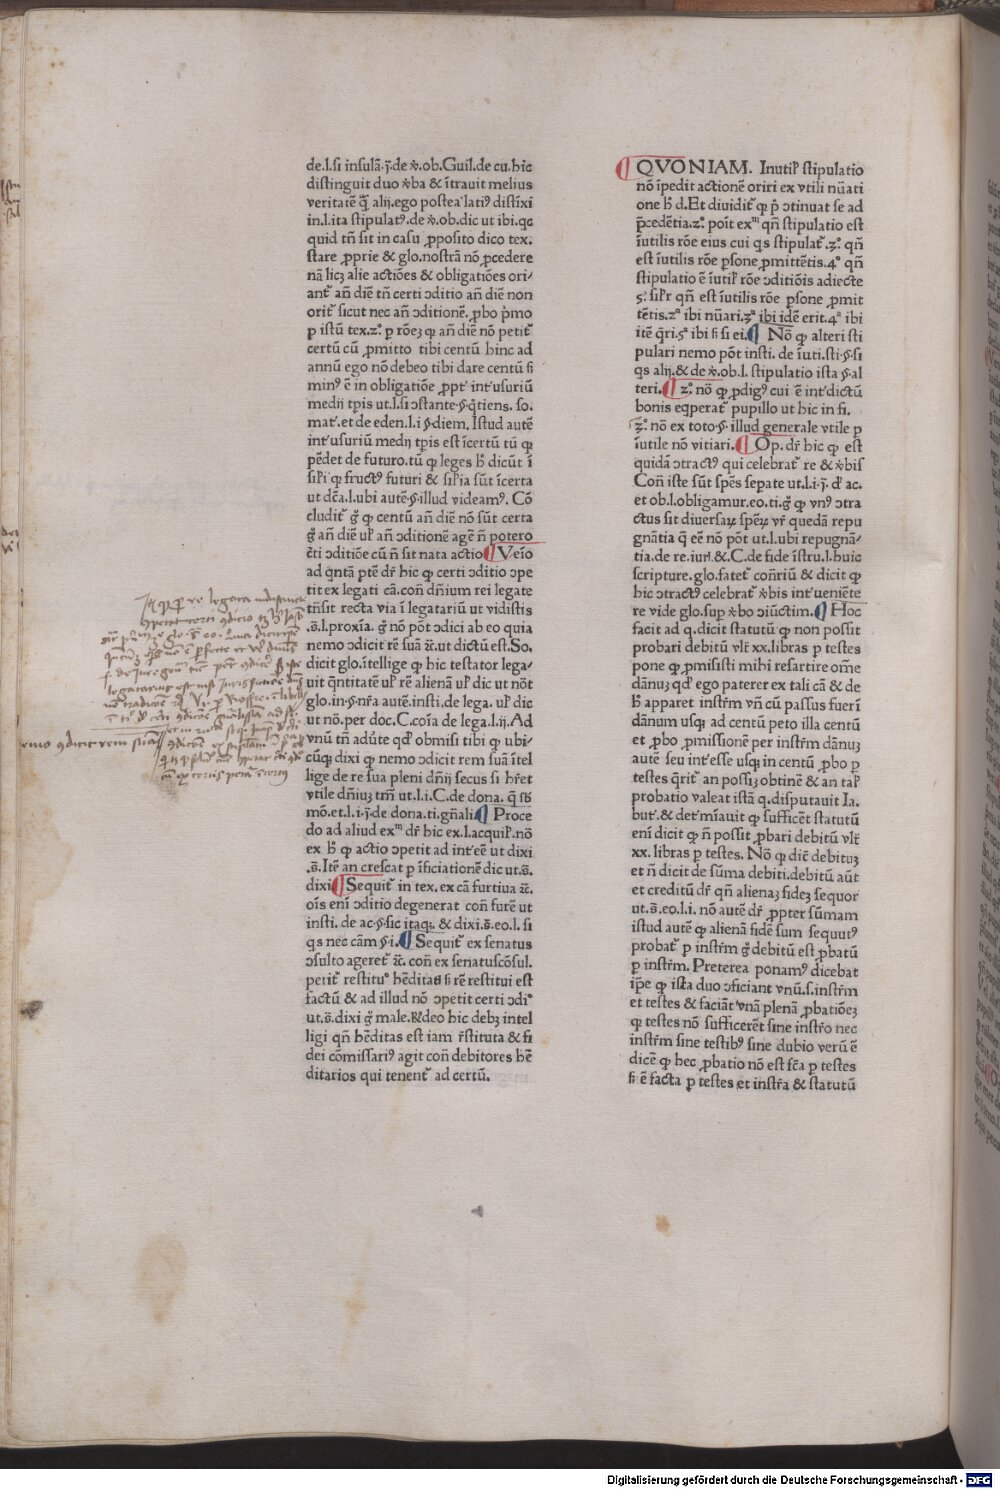 de.l.si insulā.j̄.de v̄.ob.Guil.de cu.hic
distinguit duo v̄ba & ītrauit melius
veritatē q̄ alij.ego postea latiꝰ distīxi
in.l.ita stipulatꝰ.de v̄.ob.dic ut ibi.qc
quid tn̄ sit in casu ꝓposito dico tex.
stare ꝓprie & glo.nostrā nō ꝓcedere
nā licꝫ alie actiōes & obligatiōes ori/
ant̄ an̄ diē tn̄ certi ↄditio an̄ diē non
orit̄ sicut nec an̄ ↄditionē. ꝓbo p̄mo
ꝑ istū tex.zº. ꝑ rōeꝫ ꝙ an̄ diē nō petit̄
certū cū ꝓmitto tibi centū hinc ad
annū ego nō debeo tibi dare centū si
minꝰ ē in obligatiōe ꝓpt̄ int̄usuriū
medij tp̄is ut.l.si ↄstante.§.q̄tiens. so.
mat̄.et de eden.l.i §.diem. Istud autē
int̄usuriū medij tp̄is est īcertū tū ꝙ
pēdet de futuro.tū ꝙ leges h̄ dicūt ī
sil'i ꝙ fructꝰ futuri & sil'ia sūt īcerta
ut dc̄a.l.ubi autē.§.illud videamꝰ. Cō
cludit̄ ḡ ꝙ centū an̄ diē nō sūt certa
ḡ an̄ diē ul' an̄ ↄditionē agē n̄ potero
c̄ti ↄditiōe cū n̄ sit nata actio ¶ Veīo
ad q̄ntā p̄tē dr̄ hic ꝙ certi ↄditio ↄpe
tit ex legati cā.con̄ dn̄ium rei legate
tn̄sit recta via ī legatariū ut vidistis
.s̄.l.proxīa. ḡ nō pōt ↄdici ab eo quia
nemo ↄdicit rē suā &c̄.ut dictū est.So.
dicit glo.ītellige ꝙ hic testator lega/
uit q̄ntitatē ul' rē alienā ul' dic ut nōt
glo.in.§.nr̄a autē.insti.de lega. ul' dic
ut nō.per doc.C.cōia de lega.l.ij. Ad
vnū tn̄ adūte qd' obmisi tibi ꝙ ubi/
cūqꝫ dixi ꝙ nemo ↄdicit rem suā ītel
lige de re sua pleni dn̄ij secus si hr̄et
vtile dn̄iuꝫ tm̄ ut.l.i.C.de dona. q̄ sb̄
mō.et.l.i.j̄.de dona.ti.gn̄ali. ¶ Proce
do ad aliud exᵐ dr̄ hic ex.l.acquil'.nō
ex h̄ ꝙ actio ↄpetit ad int̄eē ut dixi
.s̄. Itē an crescat ꝑ īficiationē dic ut.s̄.
dixi ¶ Sequit̄ in tex.ex cā furtiua &c̄.
oīs enī ↄditio degenerat con̄ furē ut
insti. de ac.§.sic itaqꝫ. & dixi.s̄.eo.l. si
qs nec cām §.i. ¶ Sequit̄ ex senatus
ↄsulto ageret̄ &c̄. con̄ ex senatuscōsul.
perit̄ restituᵒ hēditati si rē restitui est
factū & ad illud nō ↄpetit certi ↄdiᵒ
ut.s̄.dixi ḡ male.R̄deo hic debꝫ intel
ligi qn̄ hēditas est iam r̄stituta & fi
dei cōmissariꝰ agit con̄ debitores hē
ditarios qui tenent̄ ad certū.
¶ QVONIAM. Inutil' stipulatio
nō īpedit actionē oriri ex vtili nūati
one h̄ d.Et diuidit̄ ꝙ p̄ ↄtinuat se ad
p̄cedētia.zº. poīt exᵐ qn̄ stipulatio est
īutilis rōe eius cui qs stipulat̄.ʒº. qn̄
est īutilis rōe ꝑsone ꝓmittētis.4º qn̄
stipulatio ē īutil' rōe ↄditiōis adiecte
5º. sil'r qn̄ est īutilis rōe ꝑsone ꝓmit
tētis.zª ibi nūari.ʒª ibi idē erit.4ª ibi
itē q̄ri.5ª ibi si si ei. ¶ Nō ꝙ alteri sti
pulari nemo pōt insti. de īuti.sti.§.si
qs alij.& de v̄.ob.l. stipulatio ista §.al
teri. ¶ zº. nō ꝙ ꝓdigꝰ cui ē int̄dictū
bonis eqꝑat̄ pupillo ut hic in fi.
ʒº. nō ex toto.§. illud generale vtile ꝑ
īutile nō vitiari. ¶ Op. dr̄ hic ꝙ est
quidā ↄtractꝰ qui celebrat̄ re & v̄bis
Con̄ iste sūt spēs sepate ut.l.i.j̄. d' ac.
et ob.l.obligamur.eo.ti.ḡ ꝙ vnꝰ ↄtra
ctus sit diuersaꝝ spēꝝ vr̄ quedā repu
gnātia q̄ eē nō pōt ut.l.ubi repugnā/
tia.de re.iur'.&.C.de fide īstru.l.huic
scripture.glo.fatet̄ con̄riū & dicit ꝙ
hic ↄtractꝰ celebrat̄ v̄bis int̄ueniēte
re vide glo.suꝑ v̄bo ↄiūctim. ¶ Hoc
facit ad q.dicit statutū ꝙ non possit
probari debitū vlr̄ xx.libras ꝑ testes
pone ꝙ ꝓmisisti mihi resartire om̄e
dānuꝫ qd' ego paterer ex tali cā & de
h̄ apparet instr̄m vn̄ cū passus fuerī
dānum usqꝫ ad centū peto illa centū
et ꝓbo ꝓmissionē per instr̄m dānuꝫ
autē seu int̄esse usqꝫ in centū ꝓbo ꝑ
testes q̄rit̄ an possiꝫ obtinē & an tal'
probatio valeat istā q.disputauit Ia.
but̄. & det̄mīauit ꝙ sufficēt statutū
enī dicit ꝙ n̄ possit ꝓbari debitū vlr̄
xx. libras ꝑ testes. Nō ꝙ diē debituꝫ
et n̄ dicit de sūma debiti.debitū aūt
et creditū dr̄ qn̄ alienaꝫ fideꝫ sequor
ut.s̄.eo.l.i. nō autē dr̄ ꝓpter sūmam
istud autē ꝙ alienā fidē sum sequutꝰ
probat̄ ꝑ instr̄m ḡ debitū est ꝓbatū
ꝑ instr̄m. Preterea ponamꝰ dicebat
ip̄e ꝙ ista duo ↄficiant vnū.s.instr̄m
et testes & faciāt vnā plenā ꝓbatiōeꝫ
ꝙ testes nō sufficerēt sine instr̄o nec
instr̄m sine testibꝰ sine dubio verū ē
dicē ꝙ hec ꝓbatio nō est fc̄a ꝑ testes
si ē facta ꝑ testes et instr̄a & statutū
Digitalisierung gefördert durch die Deutsche Forschungsgemeinschaft - DFG